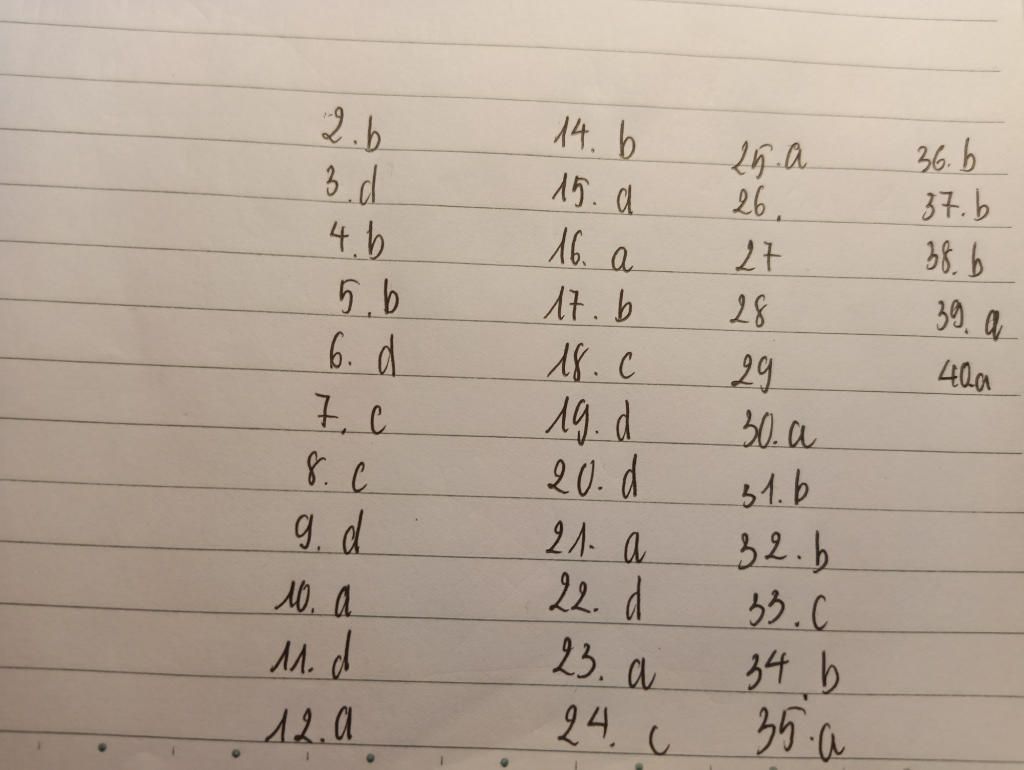 2. b
3. d
4. b
5. b
6. d
7. c
8. c
9. d
10. a
11. d
12. a
14. b
15. a
16. a
17. b
18. c
19. d
20. d
21. a
22. d
23. a
24. c
25. a
26.
27
28
29
30. a
31. b
32. b
33. c
34. b
35. a
36. b
37. b
38. b
39. a
40a